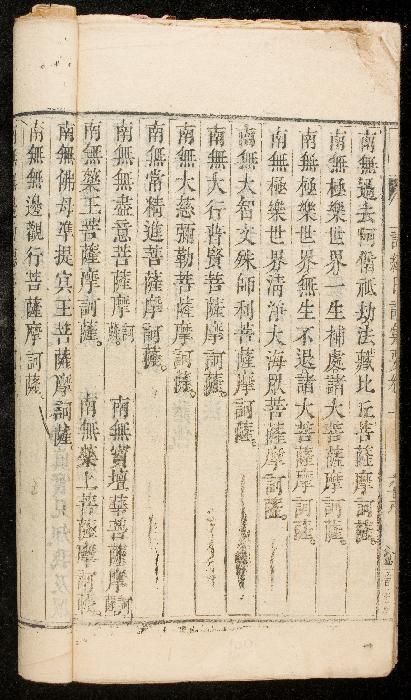 南無過去阿僧祇劫法藏比丘菩薩摩訶薩。
南無極樂世界一生補處諸大菩薩摩訶薩。
南無極樂世界無生不退諸大菩薩摩訶薩。
南無極樂世界清淨大海眾菩薩摩訶薩。
南無大智文殊師利菩薩摩訶薩。
南無大行普賢菩薩摩訶薩。
南無大慈彌勒菩薩摩訶薩。
南無常精進菩薩摩訶薩。
南無無盡意菩薩摩訶薩。 南無寶壇華菩薩摩訶薩
南無藥王菩薩摩訶薩。 南無藥上菩薩摩訶薩。
南無佛母準提寞王菩薩摩訶薩
南無無邊觀行菩薩摩訶薩